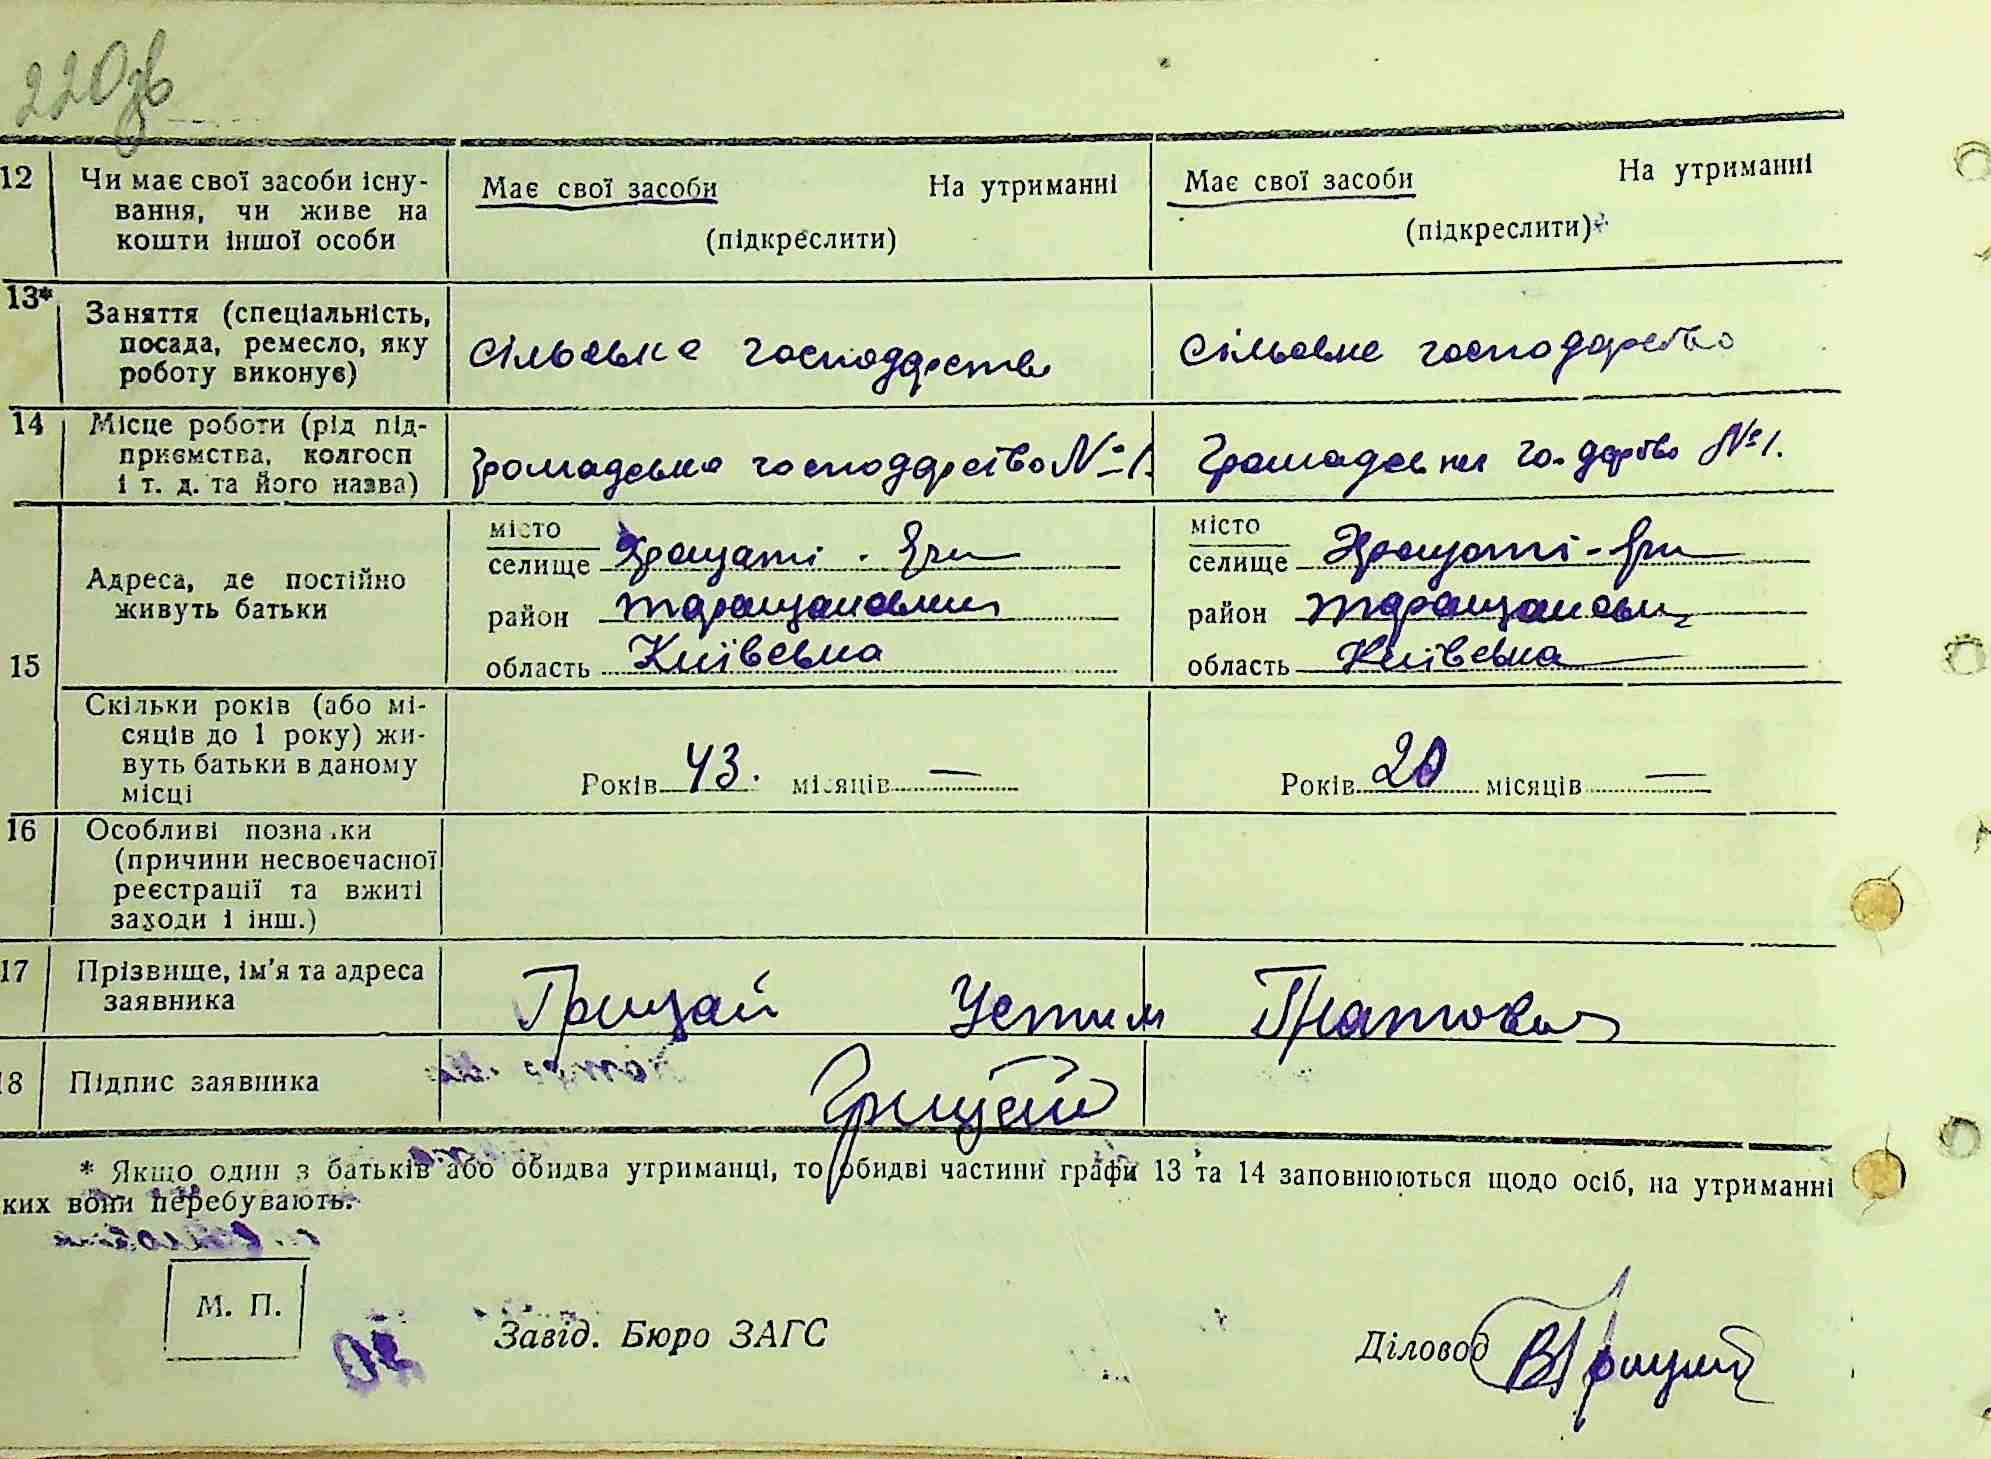 220зв
12 Чи має свої засоби існу-
вання, чи живе на
кошти іншої особи
Має свої засоби На утриманні
(підкреслити)
Має свої засоби На утриманні
(підкреслити)
13* Заняття (спеціальність,
посада, ремесло, яку
роботу виконує)
сільське господарство
сільське господарство
14 Місце роботи (рід під-
приємства, колгосп
і т. д. та його назва)
громадське господарство №1.
Громадське го-дарство №1.
15 Адреса, де постійно
живуть батьки
місто
селище Хрещаті-Яри
район таращанський
область Київська
місто
селище Хрещаті-Яри
район таращанськ
область Київська
Скільки років (або мі-
сяців до 1 року) жи-
вуть батьки в даному
місці
Років 43. місяців —
Років 20 місяців —
16 Особливі познаки
(причини несвоєчасної
реєстрації та вжиті
заходи і інш.)
17 Прізвище, ім'я та адреса
заявника
Грицай Устим Гнатович
18 Підпис заявника
Грицай
* Якщо один з батьків або обидва утриманці, то обидві частини графи 13 та 14 заповнюються щодо осіб, на утриманні
ких вони перебувають.
М. П.
Завід. Бюро ЗАГС
Діловод ВГрицай